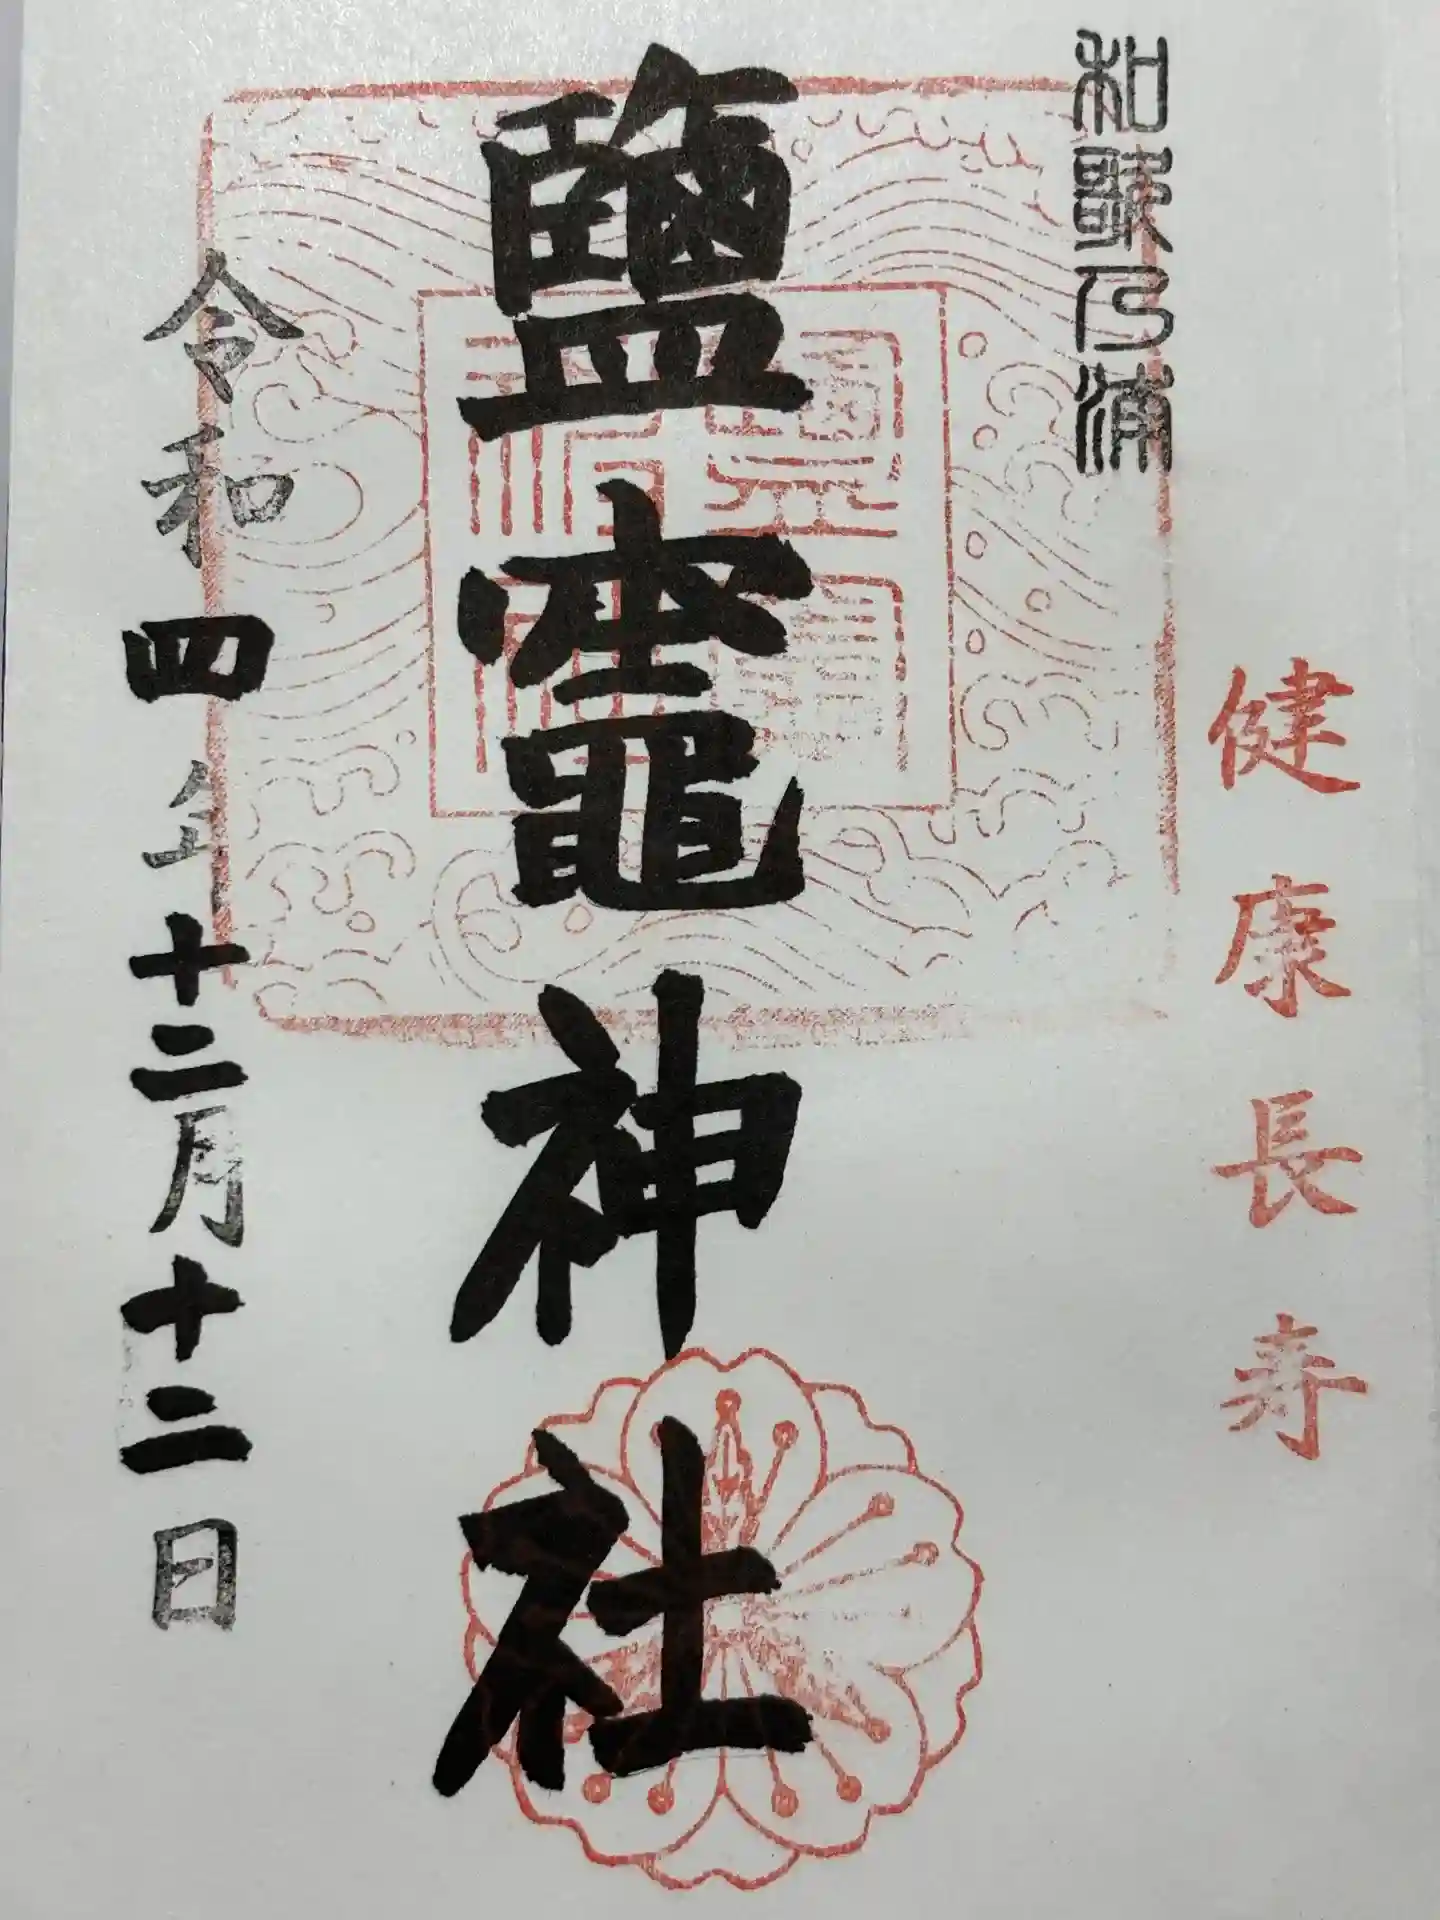 健康長寿
和歌乃浦
鹽竈神社
令和四年十二月十二日